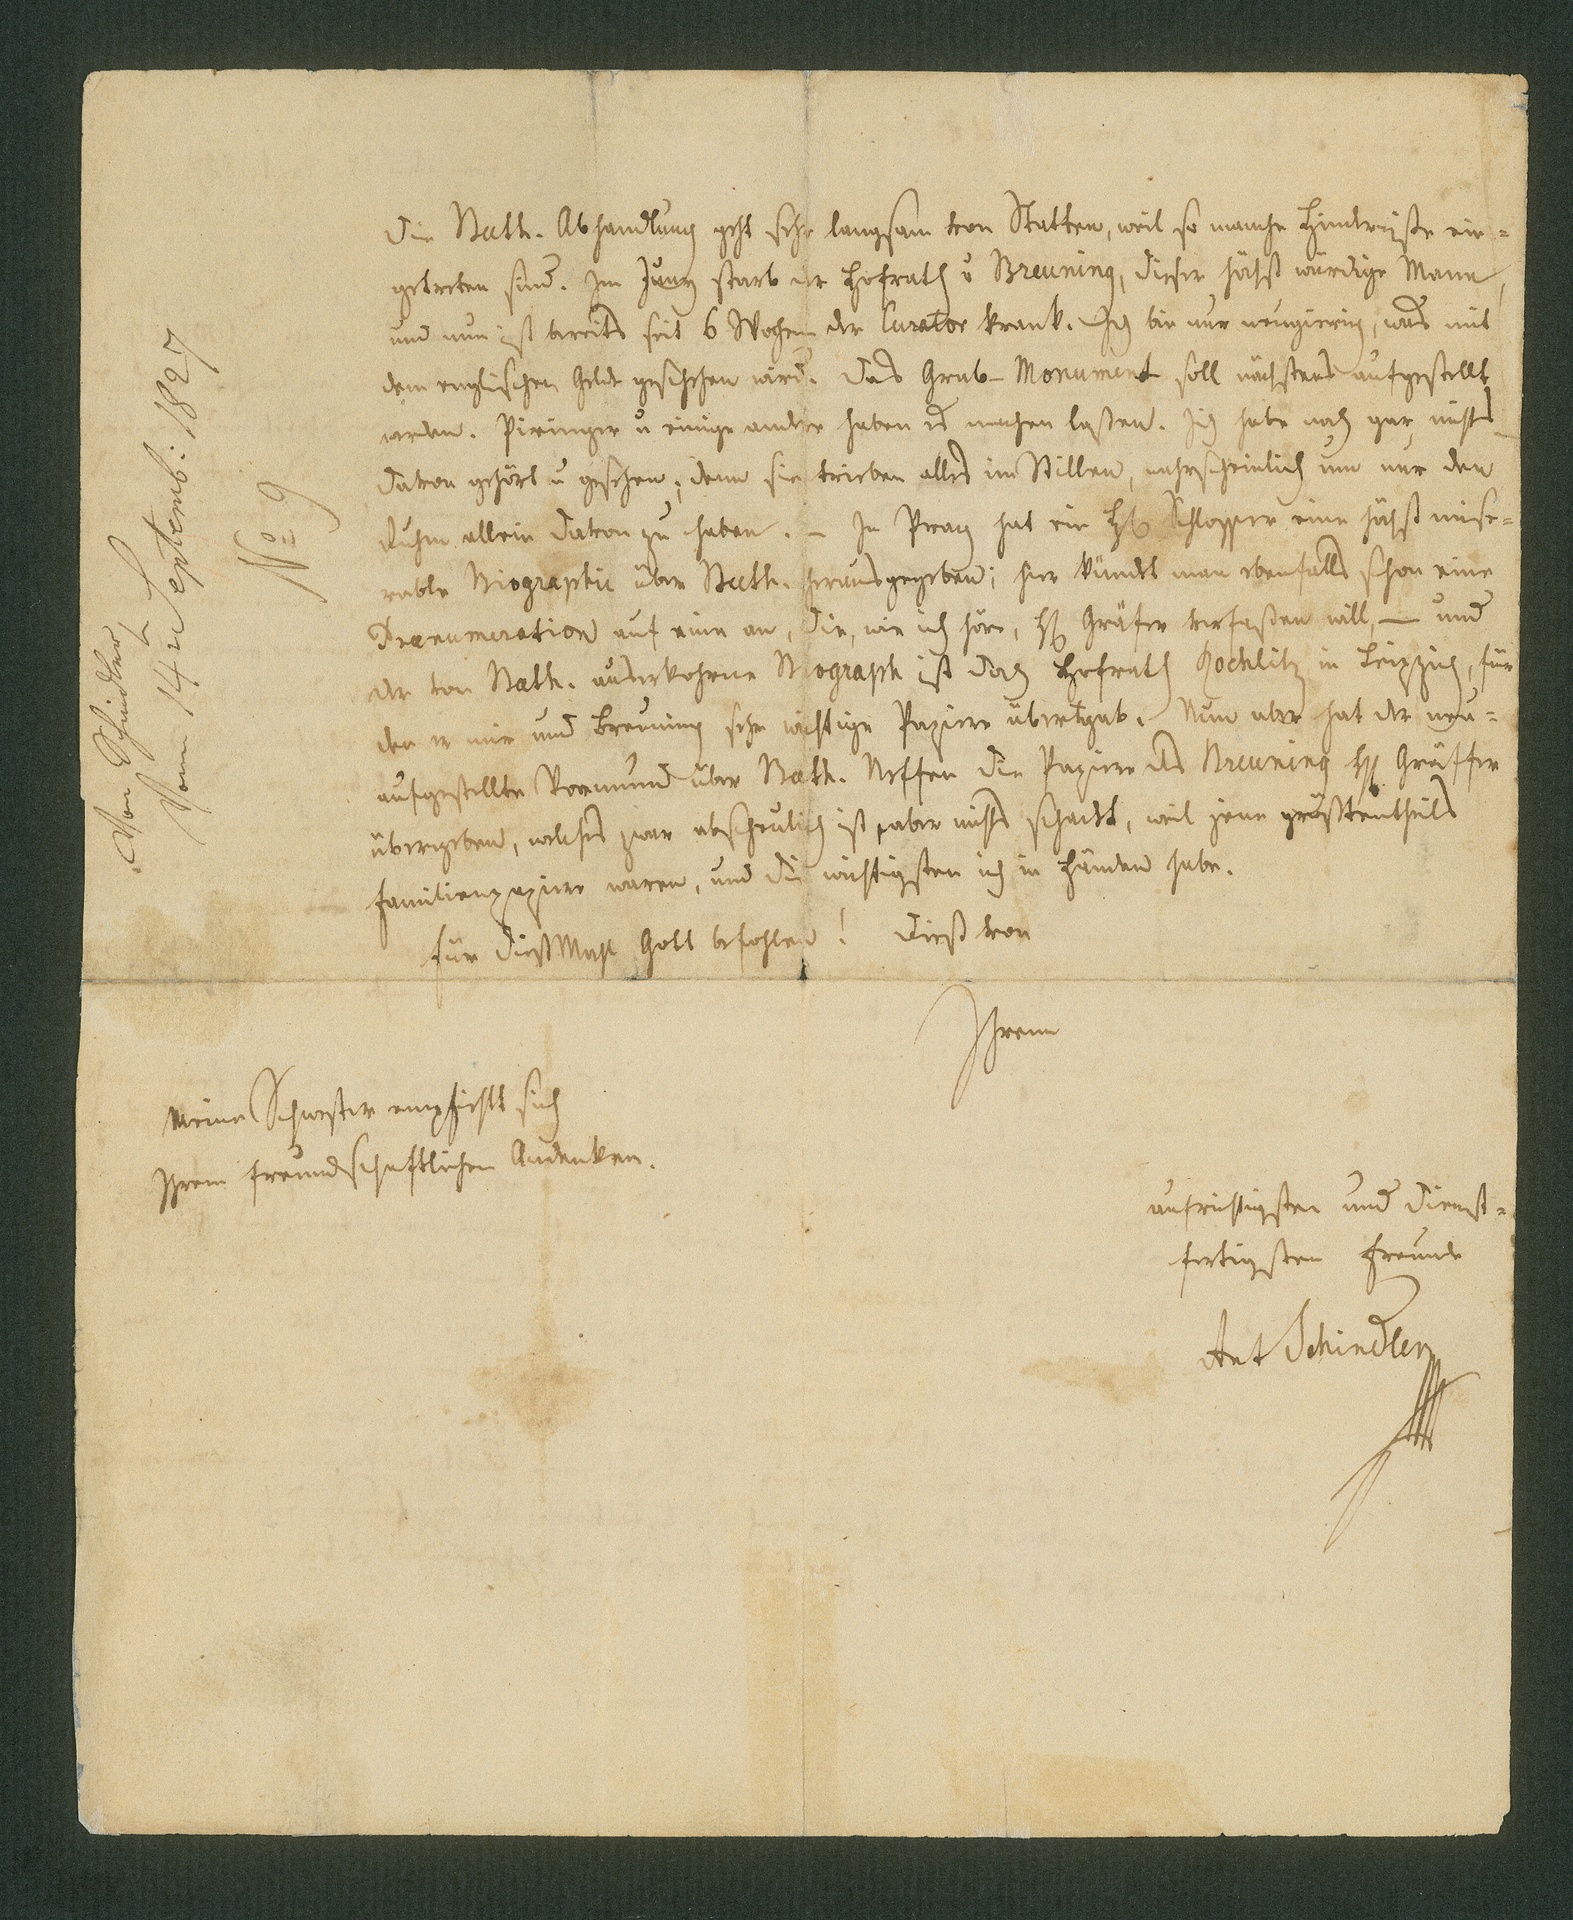 Die Beeth. Abhandlung geht sehr langsam von Statten, weil so manche Hinderniße ein=
getreten sind. Im Juny starb der Hofrath v Breuning, dieser höchst würdige Mann,
und nun ist bereits seit 6 Wochen der Curator krank. Ich bin nur neugierig, was mit
dem englischen Gelde geschehen wird. Das Grab-Monument soll nächstens aufgestellt
werden. Piringer u einige andere haben es machen laßen. Ich habe noch gar nichts
davon gehört u gesehen; denn sie trieben alles im Stillen, wahrscheinlich um nur den
Ruhm allein davon zu haben. – In Prag hat ein H. Schlosser eine höchst mise=
rable Biographie über Beeth. herausgegeben; hier kündet man ebenfalls schon eine
Praenumeration auf eine an, die, wie ich höre, H. Gräfer verfaßen will, — und
der von Beeth. auserkohrene Biograph ist doch Hofrath Rochlitz in Leipzig, für
den er mir und Breuning sehr wichtige Papiere übergab. Nun aber hat der neu=
aufgestellte Vormund über Beeth. Neffen die Papiere des Breuning H. Gräffer
übergeben, welches zwar abscheulich ist, aber nichts schadet, weil jene größtentheils
Familienpapiere waren, und die wichtigsten ich in Händen habe.
Für dießMahl Gott befohlen! Dieß von
Ihrem
Meine Schwester empfiehlt sich
Ihrem freundschaftlichen Andenken.
aufrichtigsten und dienst=
fertigsten Freunde
Ant Schindler
Von Schindler,
Vom 14ten Septemb: 1827
No 9